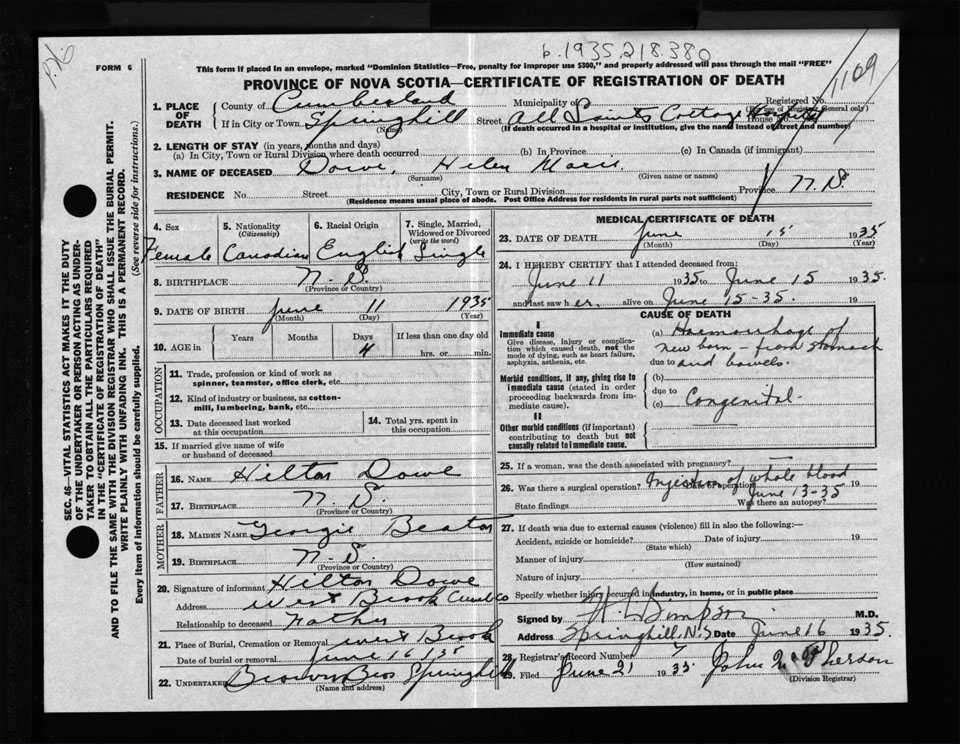 b.1935.218.380
FORM 6
This form if placed in an envelope, marked "Dominion Statistics—Free, penalty for improper use $300," and properly addressed will pass through the mail "FREE"
PROVINCE OF NOVA SCOTIA—CERTIFICATE OF REGISTRATION OF DEATH
1109
SEC. 46—VITAL STATISTICS ACT MAKES IT THE DUTY
OF THE UNDERTAKER OR PERSON ACTING AS UNDER-
TAKER TO OBTAIN ALL THE PARTICULARS REQUIRED
IN THE "CERTIFICATE OF REGISTRATION OF DEATH"
AND TO FILE THE SAME WITH THE DIVISION REGISTRAR WHO SHALL ISSUE THE BURIAL PERMIT.
WRITE PLAINLY WITH UNFADING INK. THIS IS A PERMANENT RECORD.
Every item of information should be carefully supplied. (See reverse side for instructions.)
1. PLACE OF DEATH County of Cumberland Municipality of Registered No.
(For use of Registrar General only)
If in City or Town Springhill Street All Saints Cottage Hospital House No.
(Name) (If death occurred in a hospital or institution, give the name instead of street and number)
2. LENGTH OF STAY (in years, months and days)
(a) In City, Town or Rural Division where death occurred (b) In Province (c) In Canada (if immigrant)
3. NAME OF DECEASED Dowe, Helen Marie
(Surname) (Given name or names)
RESIDENCE No. Street City, Town or Rural Division Province N.S.
(Residence means usual place of abode. Post Office Address for residents in rural parts not sufficient)
4. Sex Female
5. Nationality (Citizenship) Canadian
6. Racial Origin English
7. Single, Married, Widowed or Divorced (write the word) Single
8. BIRTHPLACE N.S.
(Province or Country)
9. DATE OF BIRTH June 11 1935
(Month) (Day) (Year)
10. AGE in Years Months Days 4 If less than one day old hrs. or min.
OCCUPATION
11. Trade, profession or kind of work as spinner, teamster, office clerk, etc.
12. Kind of industry or business, as cotton-mill, lumbering, bank, etc.
13. Date deceased last worked at this occupation
14. Total yrs. spent in this occupation
15. If married give name of wife or husband of deceased
FATHER
16. NAME Hilton Dowe
17. BIRTHPLACE N.S.
(Province or Country)
MOTHER
18. MAIDEN NAME Georgie Beaton
19. BIRTHPLACE N.S.
(Province or Country)
20. Signature of informant Hilton Dowe
Address West Brook Cumb Co
Relationship to deceased Father
21. Place of Burial, Cremation or Removal West Brook
Date of burial or removal June 16/35
22. UNDERTAKER Bros Springhill
(Name and address)
MEDICAL CERTIFICATE OF DEATH
23. DATE OF DEATH June 15 1935
(Month) (Day) (Year)
24. I HEREBY CERTIFY that I attended deceased from:
June 11 1935 to June 15 1935.
and last saw her alive on June 15-35. 19
CAUSE OF DEATH
I
Immediate cause
Give disease, injury or complication which caused death, not the mode of dying, such as heart failure, asphyxia, asthenia, etc.
(a) Haemorrhage of
new born – from stomach
due to and bowels
Morbid conditions, if any, giving rise to immediate cause (stated in order proceeding backwards from immediate cause).
(b)
due to
(c) Congenital.
II
Other morbid conditions (if important) contributing to death but not causally related to immediate cause.
25. If a woman, was the death associated with pregnancy?
26. Was there a surgical operation? Injection of whole blood Date of operation June 13-35 19
State findings Was there an autopsy?
27. If death was due to external causes (violence) fill in also the following:—
Accident, suicide or homicide? Date of injury 19
(State which)
Manner of injury
(How sustained)
Nature of injury
Specify whether injury occurred in industry, in home, or in public place
Signed by Simpson M.D.
Address Springhill, N.S. Date June 16 1935.
28. Registrar's Record Number
29. Filed June 21 1935 John
(Division Registrar)